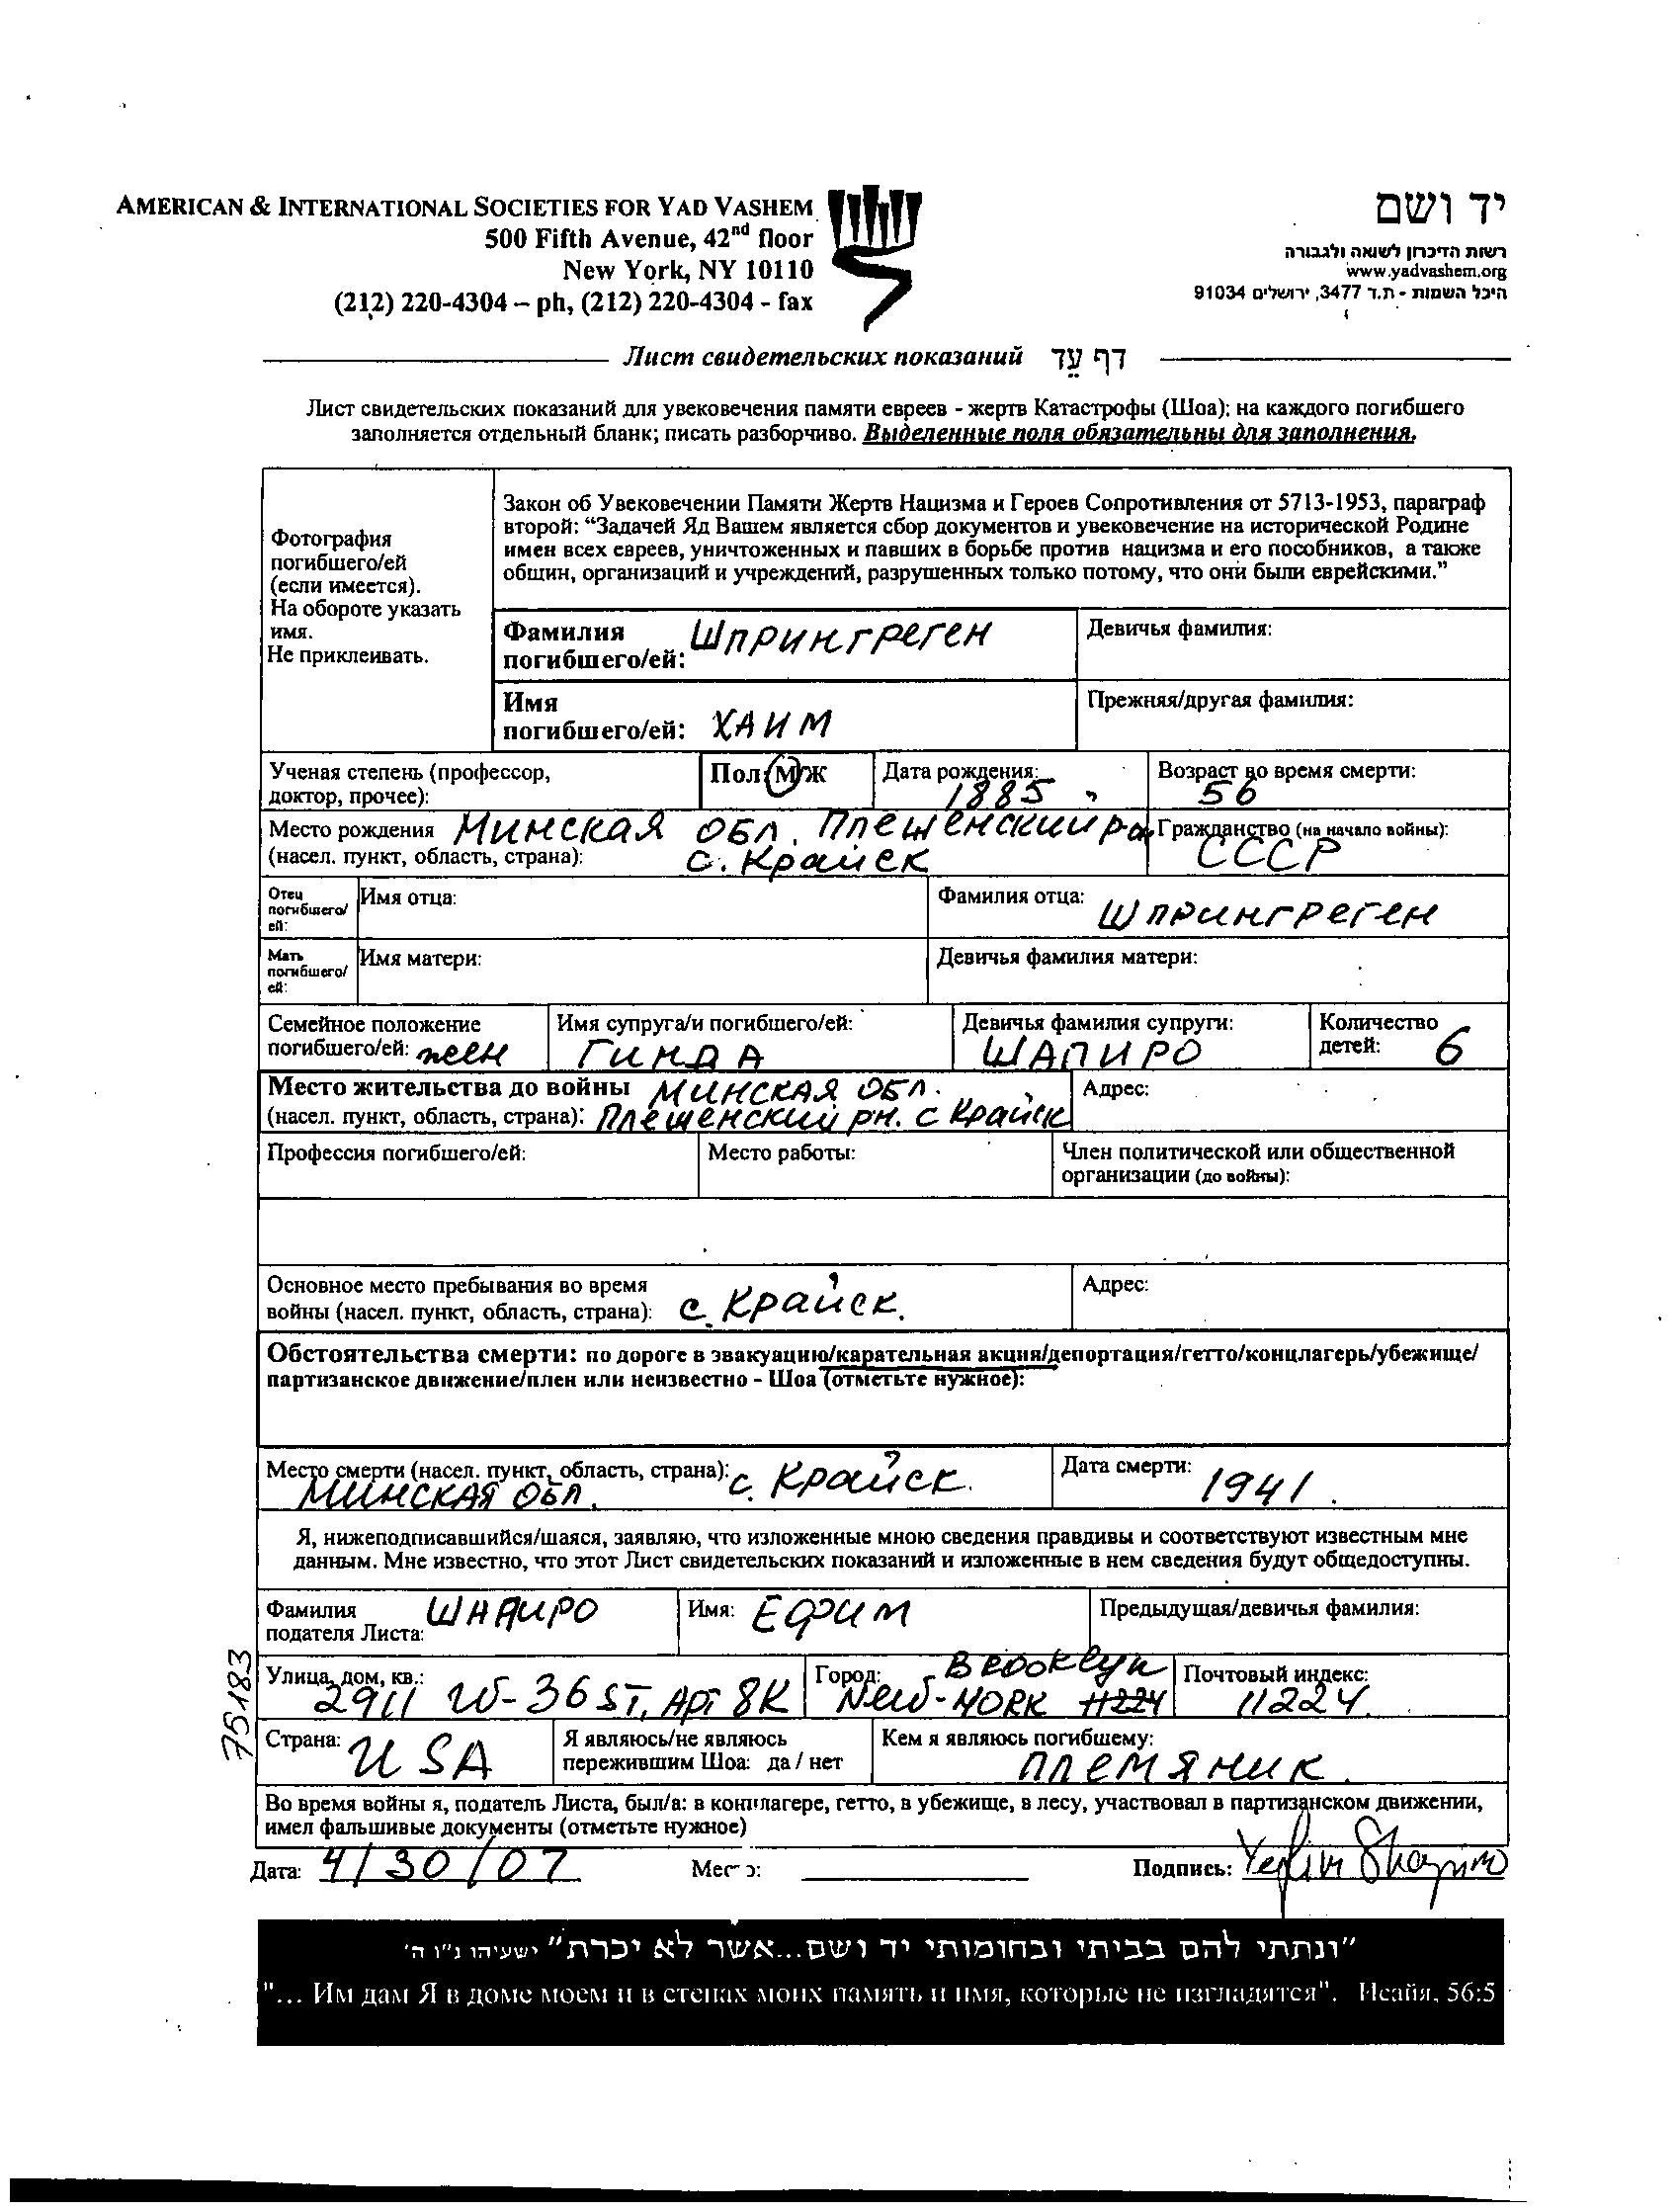 AMERICAN & INTERNATIONAL SOCIETIES FOR YAD VASHEM
500 Fifth Avenue, 42nd floor
New York, NY 10110
(212) 220-4304 – ph, (212) 220-4304 - fax
יד ושם
רשות הזיכרון לשואה ולגבורה
www.yadvashem.org
היכל השמות - ת.ד 3477, ירושלים 91034
Лист свидетельских показаний דף עֵד
Лист свидетельских показаний для увековечения памяти евреев - жертв Катастрофы (Шоа); на каждого погибшего
заполняется отдельный бланк; писать разборчиво. Выделенные поля обязательны для заполнения.
Фотография
погибшего/ей
(если имеется).
На обороте указать
имя.
Не приклеивать.
Закон об Увековечении Памяти Жертв Нацизма и Героев Сопротивления от 5713-1953, параграф
второй: “Задачей Яд Вашем является сбор документов и увековечение на исторической Родине
имен всех евреев, уничтоженных и павших в борьбе против нацизма и его пособников, а также
общин, организаций и учреждений, разрушенных только потому, что они были еврейскими.”
Фамилия
погибшего/ей: Шпрингреген
Девичья фамилия:
Имя
погибшего/ей: ХАИМ
Прежняя/другая фамилия:
Ученая степень (профессор,
доктор, прочее):
Пол: М/Ж
Дата рождения:
1885
Возраст во время смерти:
56
Место рождения Минская обл. Плещенский р-
(насел. пункт, область, страна): с. Крайск
Гражданство (на начало войны):
СССР
Отец
погибшего/
ей:
Имя отца:
Фамилия отца: Шпрингреген
Мать
погибшего/
ей:
Имя матери:
Девичья фамилия матери:
Семейное положение
погибшего/ей: жен
Имя супруга/и погибшего/ей:
ГИНДА
Девичья фамилия супруги:
ШАПИРО
Количество
детей: 6
Место жительства до войны МИНСКАЯ ОБЛ.
(насел. пункт, область, страна): Плещенский рн. с Крайск
Адрес:
Профессия погибшего/ей:
Место работы:
Член политической или общественной
организации (до войны):
Основное место пребывания во время
войны (насел. пункт, область, страна): с. Крайск.
Адрес:
Обстоятельства смерти: по дороге в эвакуацию/карательная акция/депортация/гетто/концлагерь/убежище/
партизанское движение/плен или неизвестно - Шоа (отметьте нужное):
Место смерти (насел. пункт, область, страна): с. Крайск.
МИНСКАЯ ОБЛ.
Дата смерти: 1941.
Я, нижеподписавшийся/шаяся, заявляю, что изложенные мною сведения правдивы и соответствуют известным мне
данным. Мне известно, что этот Лист свидетельских показаний и изложенные в нем сведения будут общедоступны.
Фамилия
подателя Листа: ШАПИРО
Имя: ЕФИМ
Предыдущая/девичья фамилия:
Улица, дом, кв.:
2911 W-36 ST, Apt 8K
Город: Brooklyn
New-YORK 11224
Почтовый индекс:
11224.
75183
Страна: USA
Я являюсь/не являюсь
пережившим Шоа: да / нет
Кем я являюсь погибшему:
племяник.
Во время войны я, податель Листа, был/а: в концлагере, гетто, в убежище, в лесу, участвовал в партизанском движении,
имел фальшивые документы (отметьте нужное)
Дата: 4/30/07
Место:
Подпись: Yefim Shapiro
"ונתתי להם בביתי ובחומותי יד ושם...אשר לא יכרת" ישעיהו נ"ו ה'
"... Им дам Я в доме моем и в стенах моих память и имя, которые не изгладятся". Исайя, 56:5